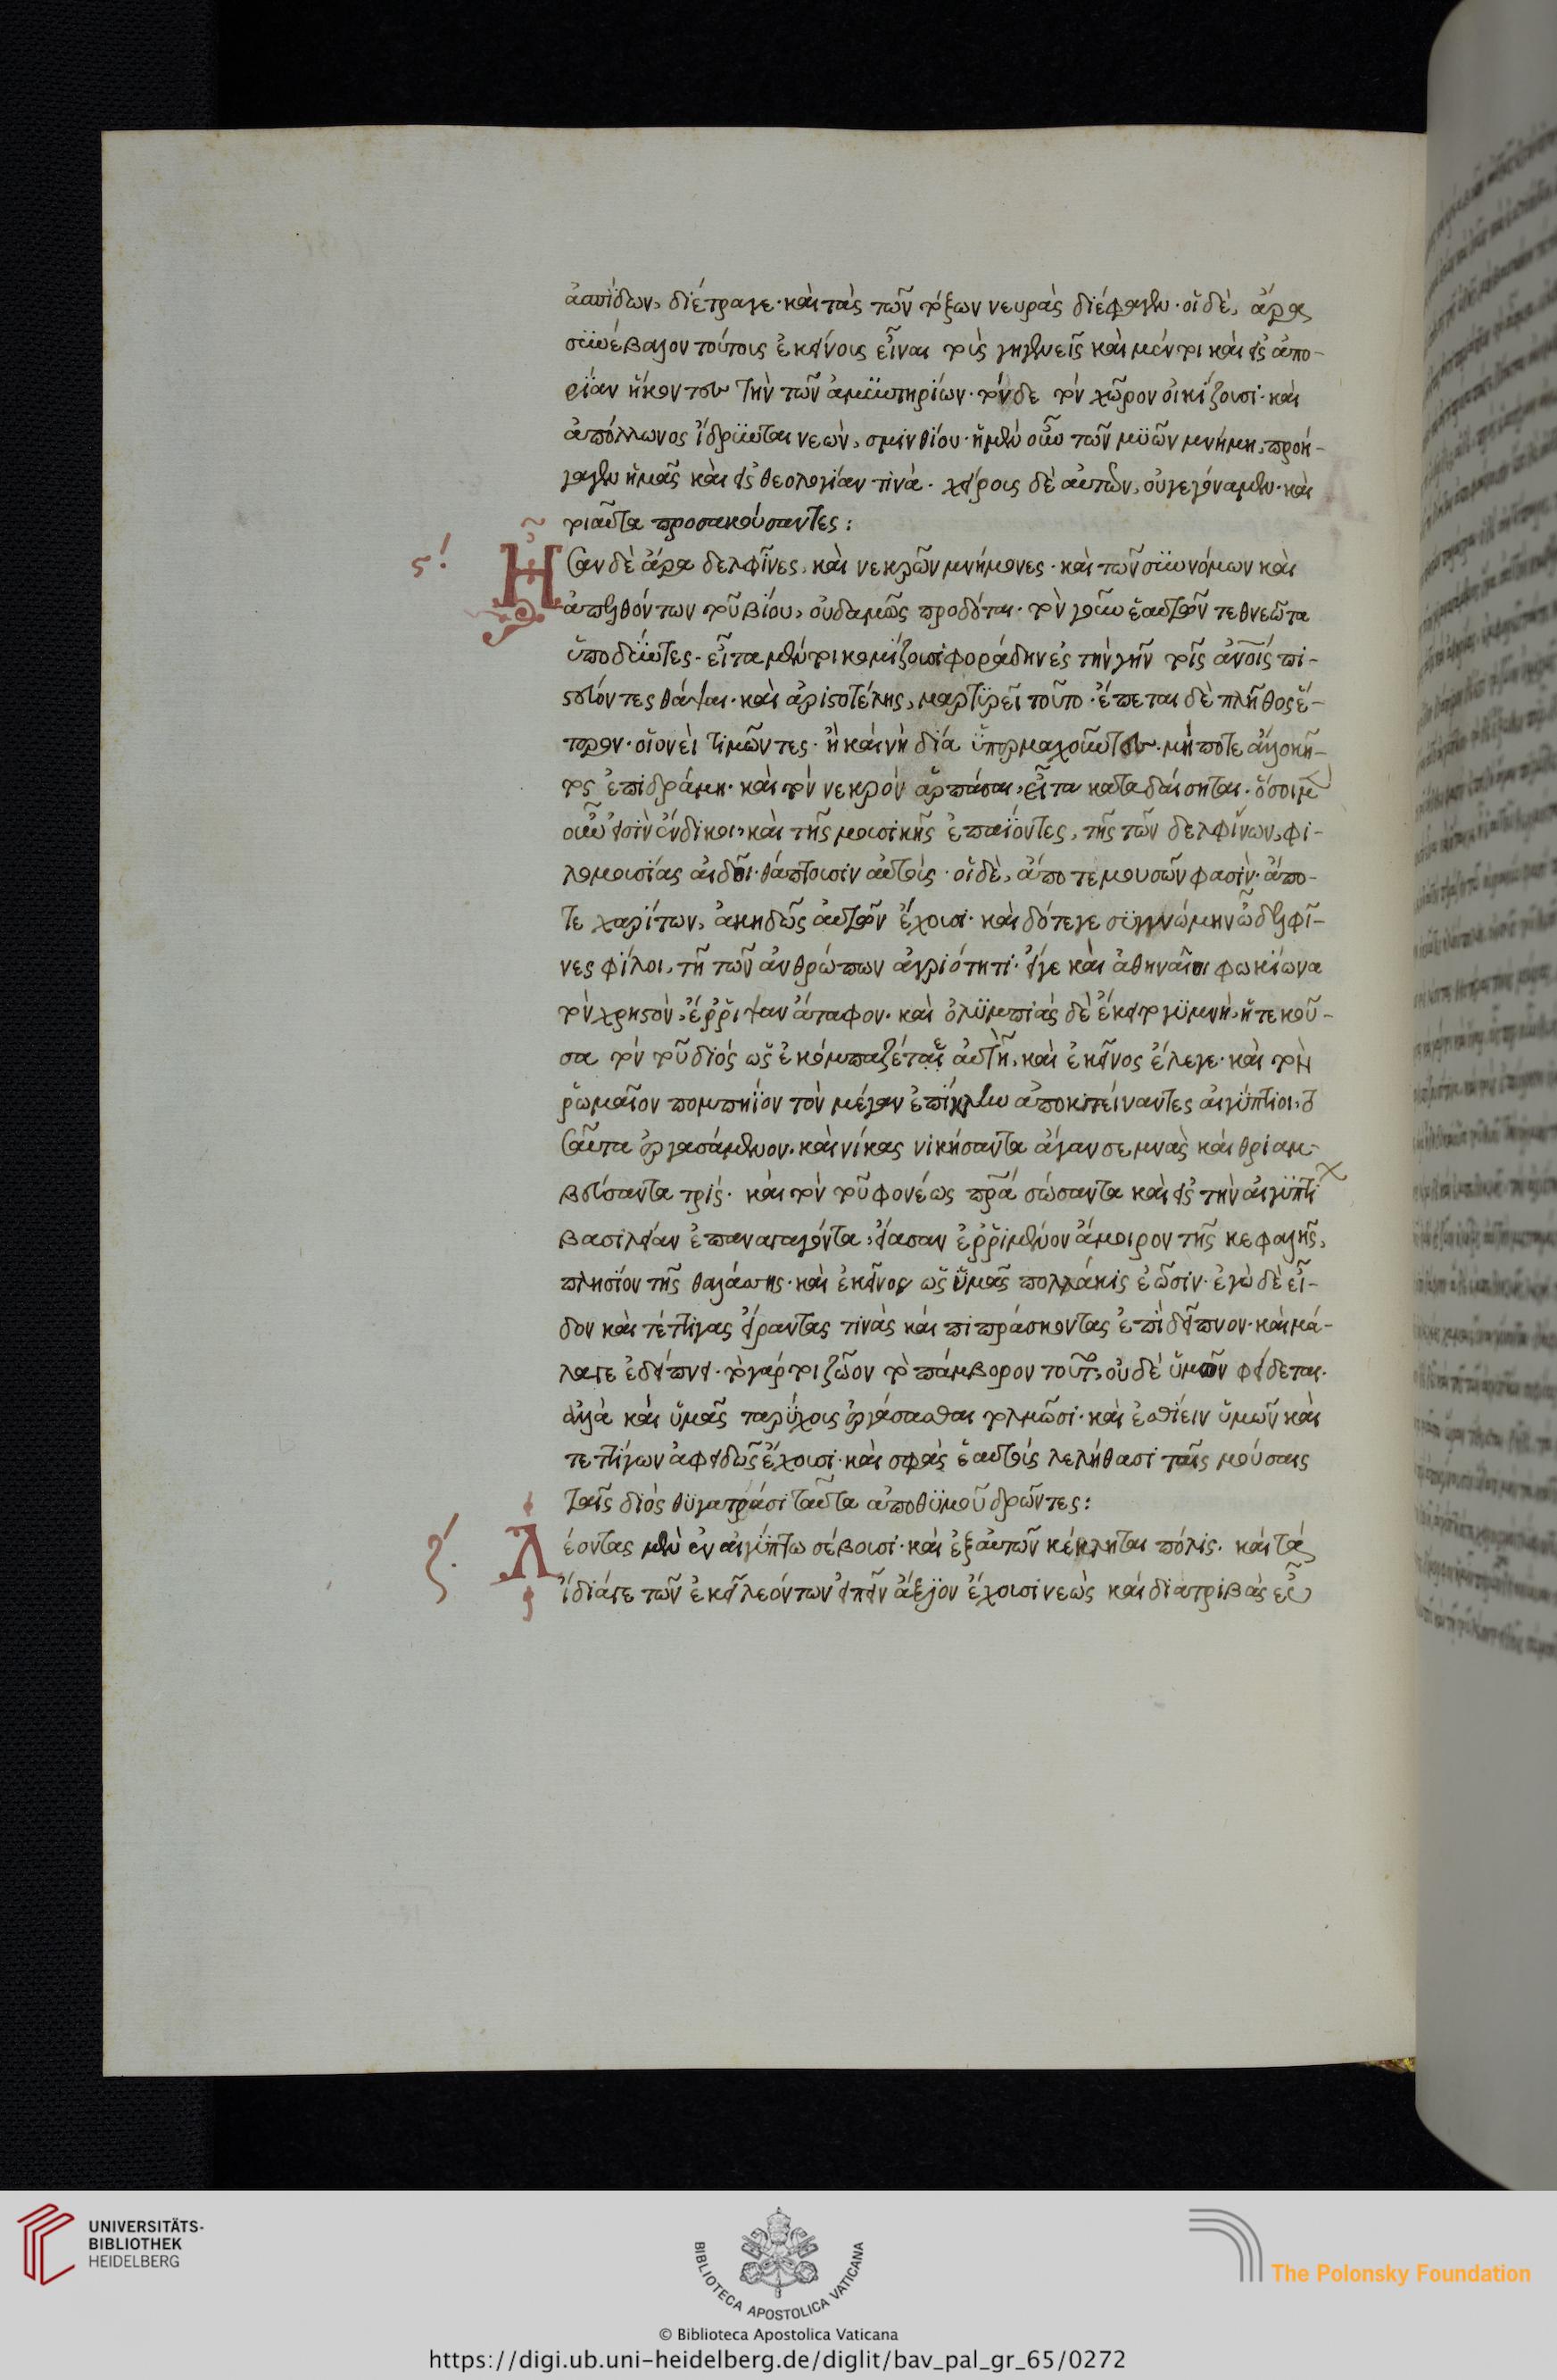 ἀσπίδων, διέτραγε· καὶ τὰς τῶν τόξων νευρὰς διέφαγεν· οἱ δὲ, ἄρα
συνέβαλον τούτοις ἐκείνοις εἶναι τοὺς γηγενεῖς καὶ μέντοι καὶ εἰς ἀπο-
ρίαν ἥκοντες τὴν τῶν ἀμυντηρίων· τόνδε τὸν χῶρον οἰκίζουσι· καὶ
ἀπόλλωνος ἱδρύονται νεών, σμινθίου· ἡ μὲν οὖν τῶν μυῶν μνήμη, προή-
γαγεν ἡμᾶς καὶ εἰς θεολογίαν τινά· χείρους δὲ αὐτῶν, οὐ γεγόναμεν· καὶ
τοιαῦτα προσακούσαντες:
ς΄. Ἦσαν δὲ ἄρα δελφῖνες, καὶ νεκρῶν μνήμονες· καὶ τῶν συννόμων καὶ
ἀπελθόντων τοῦ βίου, οὐδαμῶς προδόται· τὸν γοῦν ἑαυτῶν τεθνεῶτα
ὑποδύντες· εἶτα μέντοι κομίζουσι φοράδην ἐς τὴν γῆν τοῖς ἀνοις πι-
στεύοντες θάψαι· καὶ ἀριστοτέλης, μαρτυρεῖ τοῦτο· ἕπεται δὲ πλῆθος ἕ-
τερον· οἱονεὶ τιμῶντες· ἢ καὶ νὴ δία ὑπερμαχοῦντες· μή ποτε ἄλλο κῆ-
τος ἐπιδράμῃ· καὶ τὸν νεκρὸν ἁρπάσαι, εἶτα καταδαίσηται· ὅσοι μ
οὖν εἰσὶν ἔνδικοι, καὶ τῆς μουσικῆς ἐπαΐοντες, τῆς τῶν δελφίνων, φι-
λομουσίας αἰδοῖ· θάπτουσιν αὐτούς· οἱ δὲ, ἄπο τε μουσῶν φασὶν· ἄπο-
τε χαρίτων, ἀκηδῶς αὐτῶν ἔχουσι· καὶ δότε γε συγγνώμην ὦ δελφῖ-
νες φίλοι, τῇ τῶν ἀνθρώπων ἀγριότητι· εἴγε καὶ ἀθηναῖοι φωκίωνα
τὸν χρηστὸν, ἔρριψαν ἄταφον· καὶ ὀλυμπιὰς δὲ ἔκειτο γυμνὴ, ἡ τεκοῦ-
σα τὸν τοῦ διός ὡς ἐκόμπαζέ τε αὐτὴ, καὶ ἐκεῖνος ἔλεγε· καὶ τὸν
ῥωμαῖον πομπήϊον τὸν μέγαν ἐπίκλην ἀποκτείναντες αἰγύπτιοι, τ
ταῦτα ἐργασάμενον· καὶ νίκας νικήσαντα ἄγαν σεμνὰς καὶ θριαμ-
βεύσαντα τρίς· καὶ τὸν τοῦ φονέως πρα σώσαντα καὶ εἰς τὴν αἰγύπτι
βασιλείαν ἐπαναγαγόντα, εἴασαν ἐρριμένον ἄμοιρον τῆς κεφαλῆς,
πλησίον τῆς θαλάττης· καὶ ἐκεῖνος ὡς ὑμᾶς πολλάκις ἐῶσιν· ἐγὼ δὲ εἶ-
δον καὶ τέττιγας εἴραντας τινὰς καὶ πιπράσκοντας ἐπὶ δεῖπνον· καὶ μά-
λα γε ἐδείπνει· τὸ γάρ τοι ζῷον τὸ πάμβορον τοῦτο, οὐδὲ ὑμῶν φείδεται·
ἀλλὰ καὶ ὑμᾶς ταρίχους ἐργάσασθαι τολμῶσι· καὶ ἐσθίειν ὑμῶν καὶ
τεττίγων ἀφειδῶς ἔχουσι· καὶ σφᾶς ἑαυτούς λελήθασι ταῖς μούσαις
ταῖς διὸς θυγατράσι ταῦτα ἀποθύμου δρῶντες:
ζ΄. Λέοντας μὲν ἐν αἰγύπτω σέβουσι· καὶ ἐξ αὐτῶν κέκληται πόλις· καὶ τὰ
ἴδιά γε τῶν ἐκεῖ λεόντων εἰπεῖν ἄξιον ἔχουσι νεὼς καὶ διατριβὰς εὖ
UNIVERSITÄTS-
BIBLIOTHEK
HEIDELBERG
BIBLIOTECA APOSTOLICA VATICANA
The Polonsky Foundation
© Biblioteca Apostolica Vaticana
https://digi.ub.uni-heidelberg.de/diglit/bav_pal_gr_65/0272